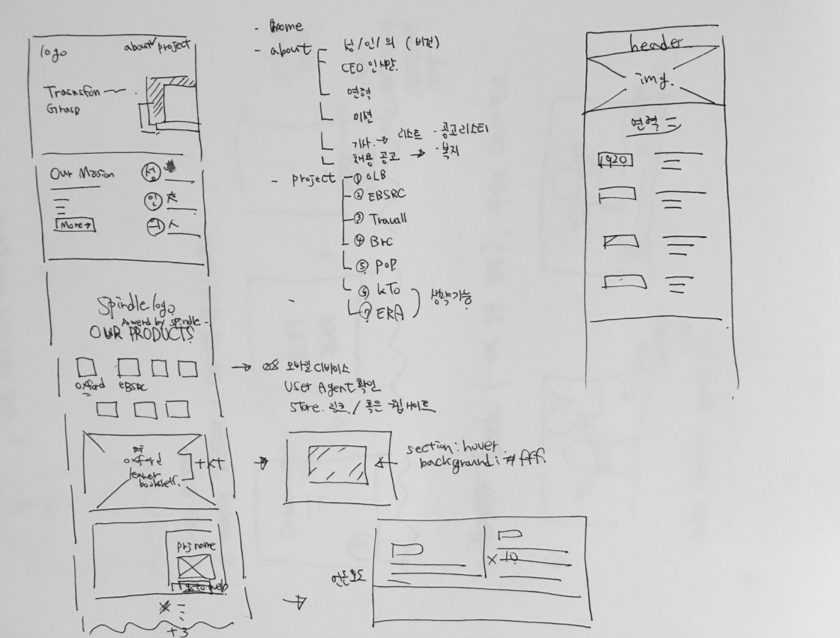 logo
about project
Our Mission
성
인
의
More →
Spindle logo
OUR PRODUCTS
oxford
EBSRC
oxford
learner
bookshelf.
txt
prj name
+3
- home
- about
성/인/의 (비전)
CEO 인사말.
연혁
미션
기사. → 리스트 · 공고리스트
채용 공고 → · 복지
- project
① OLB
② EBSRC
③ Travall
④ Brc
⑤ POP.
⑥ KTO
⑦ ERA
생략가능
→ os 모바일 디바이스
User Agent 확인
Store. 링크. / 혹은 웹사이트
section:hover
background:#fff.
×10
header.
img.
연혁
1920